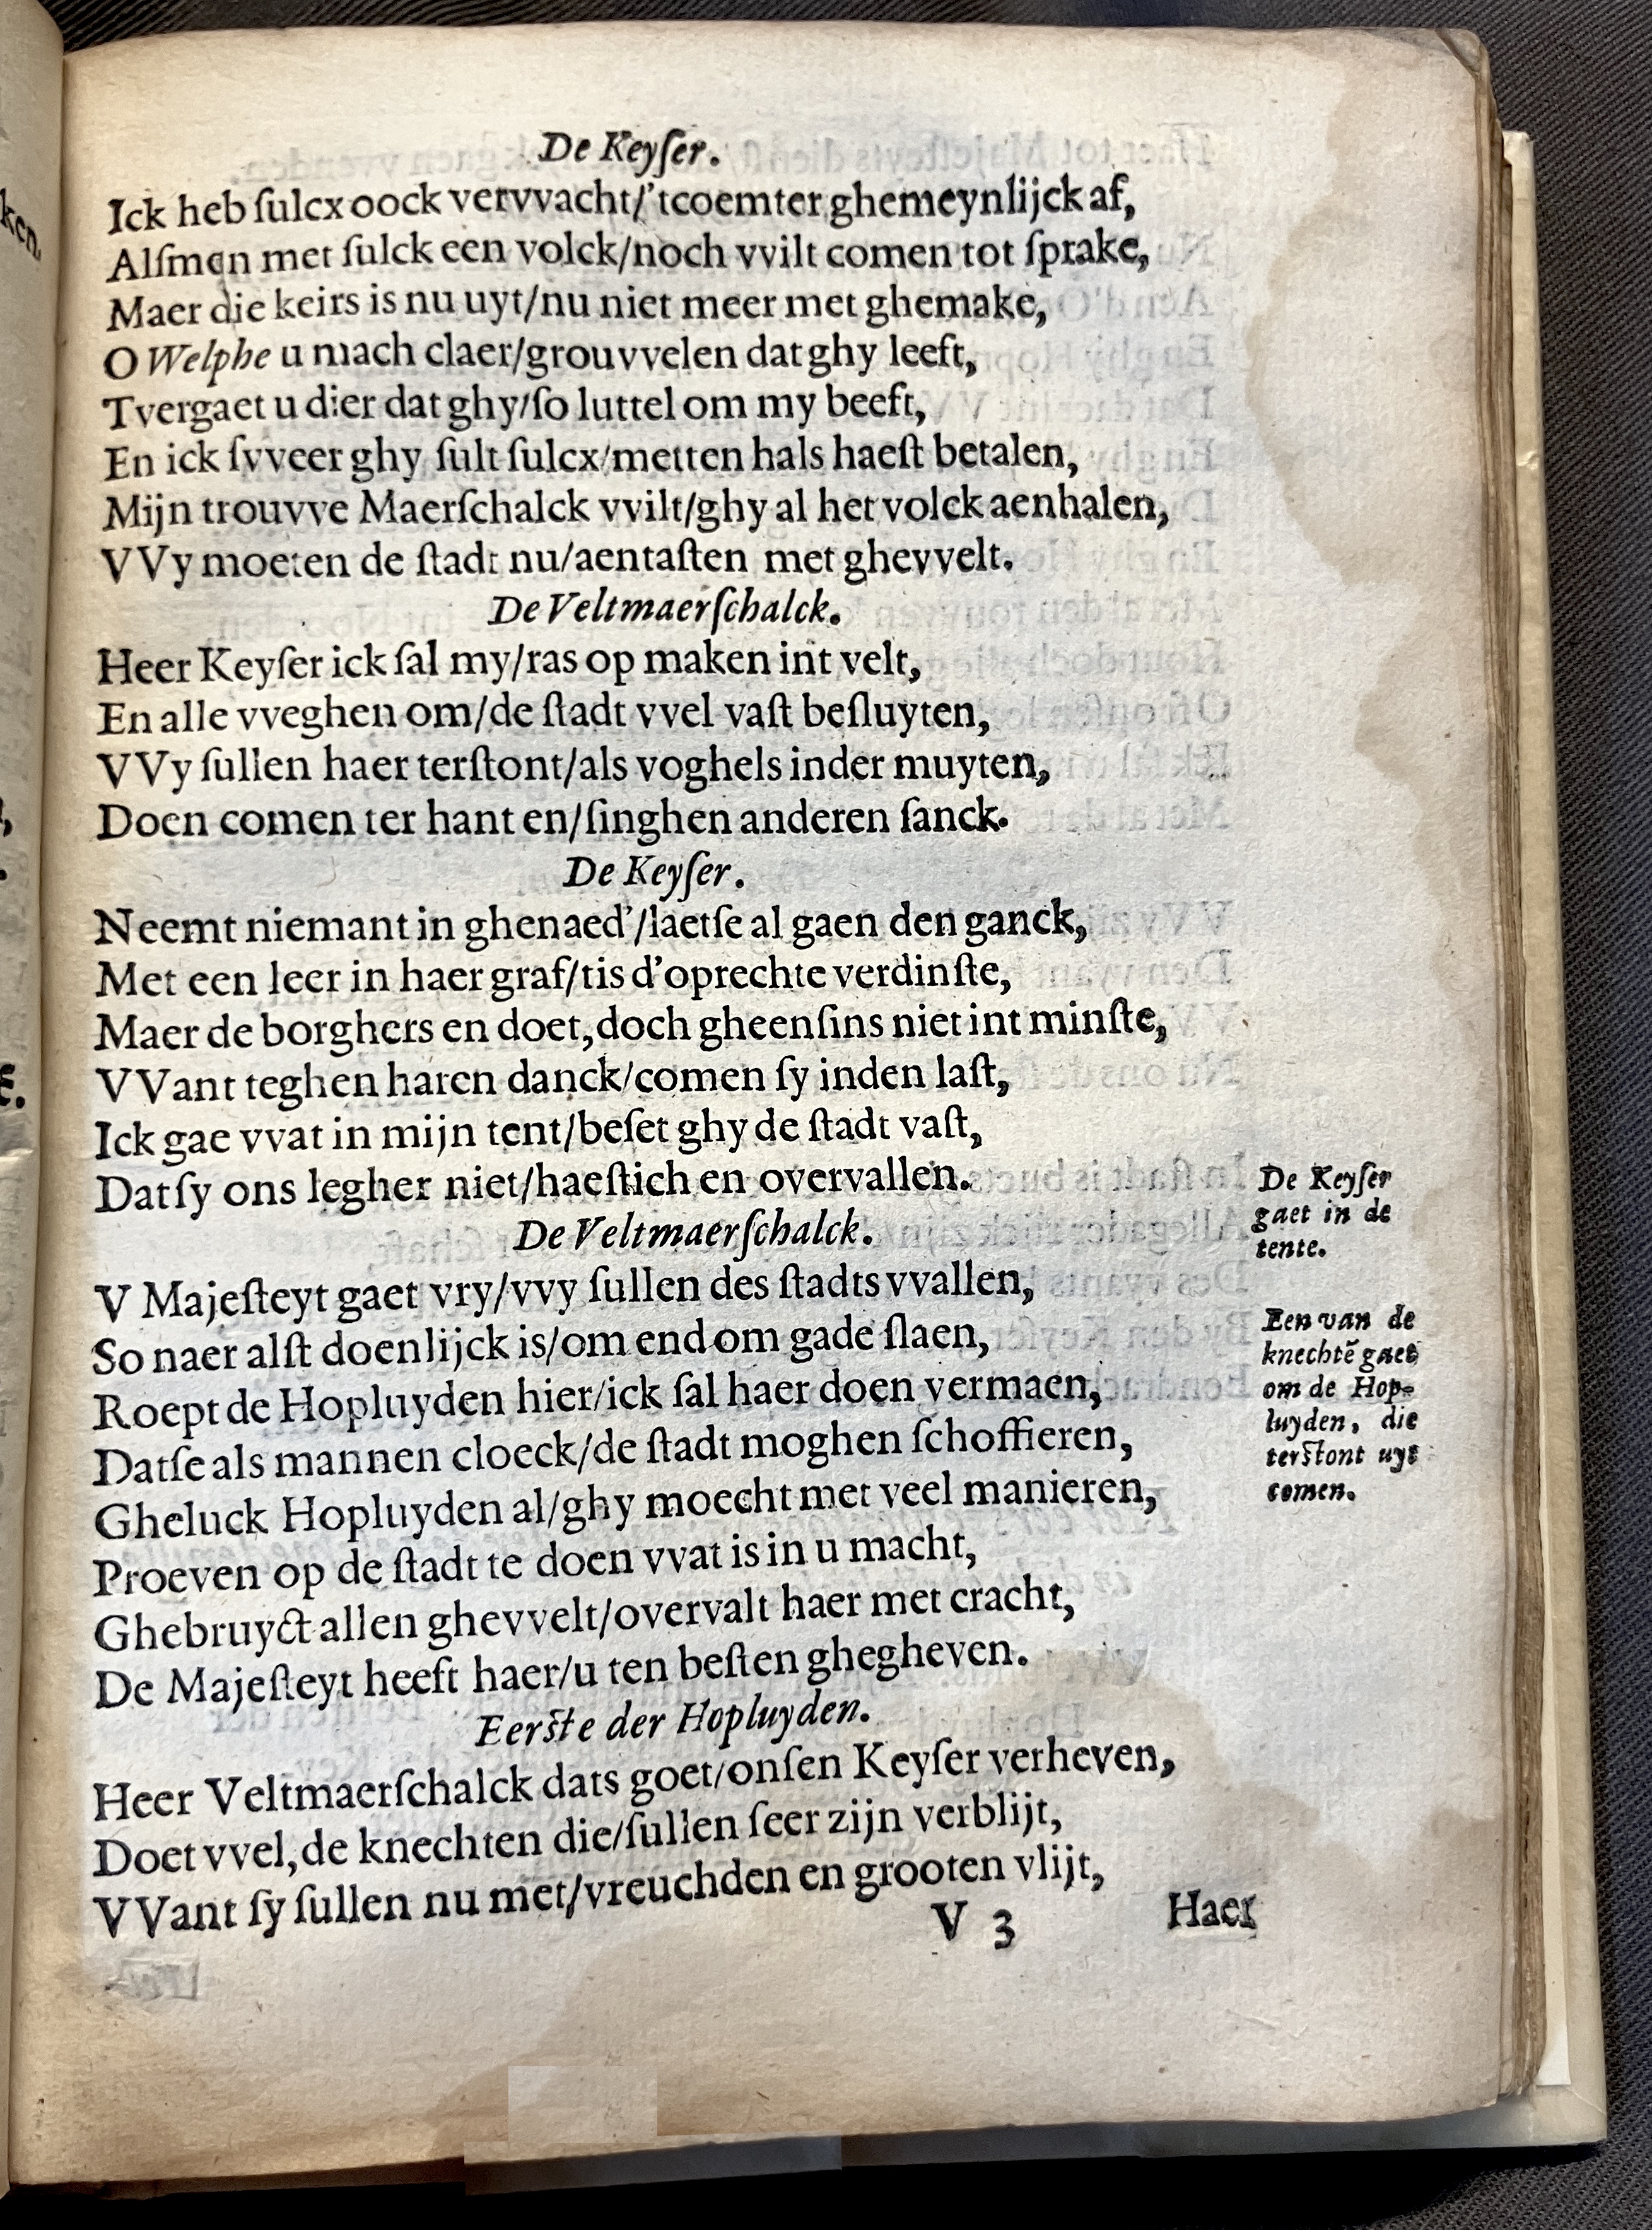 De Keyſer.
Ick heb ſulcx oock vervvacht/'tcoemter ghemeynlijck af,
Alſmen met ſulck een volck/noch vvilt comen tot ſprake,
Maer die keirs is nu uyt/nu niet meer met ghemake,
O Welphe u mach claer/grouvvelen dat ghy leeft,
Tvergaet u dier dat ghy/ſo luttel om my beeft,
En ick ſvveer ghy ſult ſulcx/metten hals haeſt betalen,
Mijn trouvve Maerſchalck vvilt/ghy al het volck aenhalen,
VVy moeten de ſtadt nu/aentaſten met ghevvelt.
De Veltmaerſchalck.
Heer Keyſer ick ſal my/ras op maken int velt,
En alle vveghen om/de ſtadt vvel vaſt beſluyten,
VVy ſullen haer terſtont/als voghels inder muyten,
Doen comen ter hant en/ſinghen anderen ſanck.
De Keyſer.
Neemt niemant in ghenaed'/laetſe al gaen den ganck,
Met een leer in haer graf/tis d'oprechte verdinſte,
Maer de borghers en doet,doch gheenſins niet int minſte,
VVant teghen haren danck/comen ſy inden laſt,
Ick gae vvat in mijn tent/beſet ghy de ſtadt vaſt,
Datſy ons legher niet/haeſtich en overvallen.
De Keyſer
gaet in de
tente.
De Veltmaerſchalck.
V Majeſteyt gaet vry/vvy ſullen des ſtadts vvallen,
So naer alſt doenlijck is/om end om gade ſlaen,
Roept de Hopluyden hier/ick ſal haer doen vermaen,
Datſe als mannen cloeck/de ſtadt moghen ſchoffieren,
Gheluck Hopluyden al/ghy moecht met veel manieren,
Proeven op de ſtadt te doen vvat is in u macht,
Ghebruyct allen ghevvelt/overvalt haer met cracht,
De Majeſteyt heeft haer/u ten beſten ghegheven.
Een van de
knechtẽ gaet
om de Hop-
luyden, die
terſtont uyt
comen.
Eerſte der Hopluyden.
Heer Veltmaerſchalck dats goet/onſen Keyſer verheven,
Doet vvel,de knechten die/ſullen ſeer zijn verblijt,
VVant ſy ſullen nu met/vreuchden en grooten vlijt,
V 3 Haer